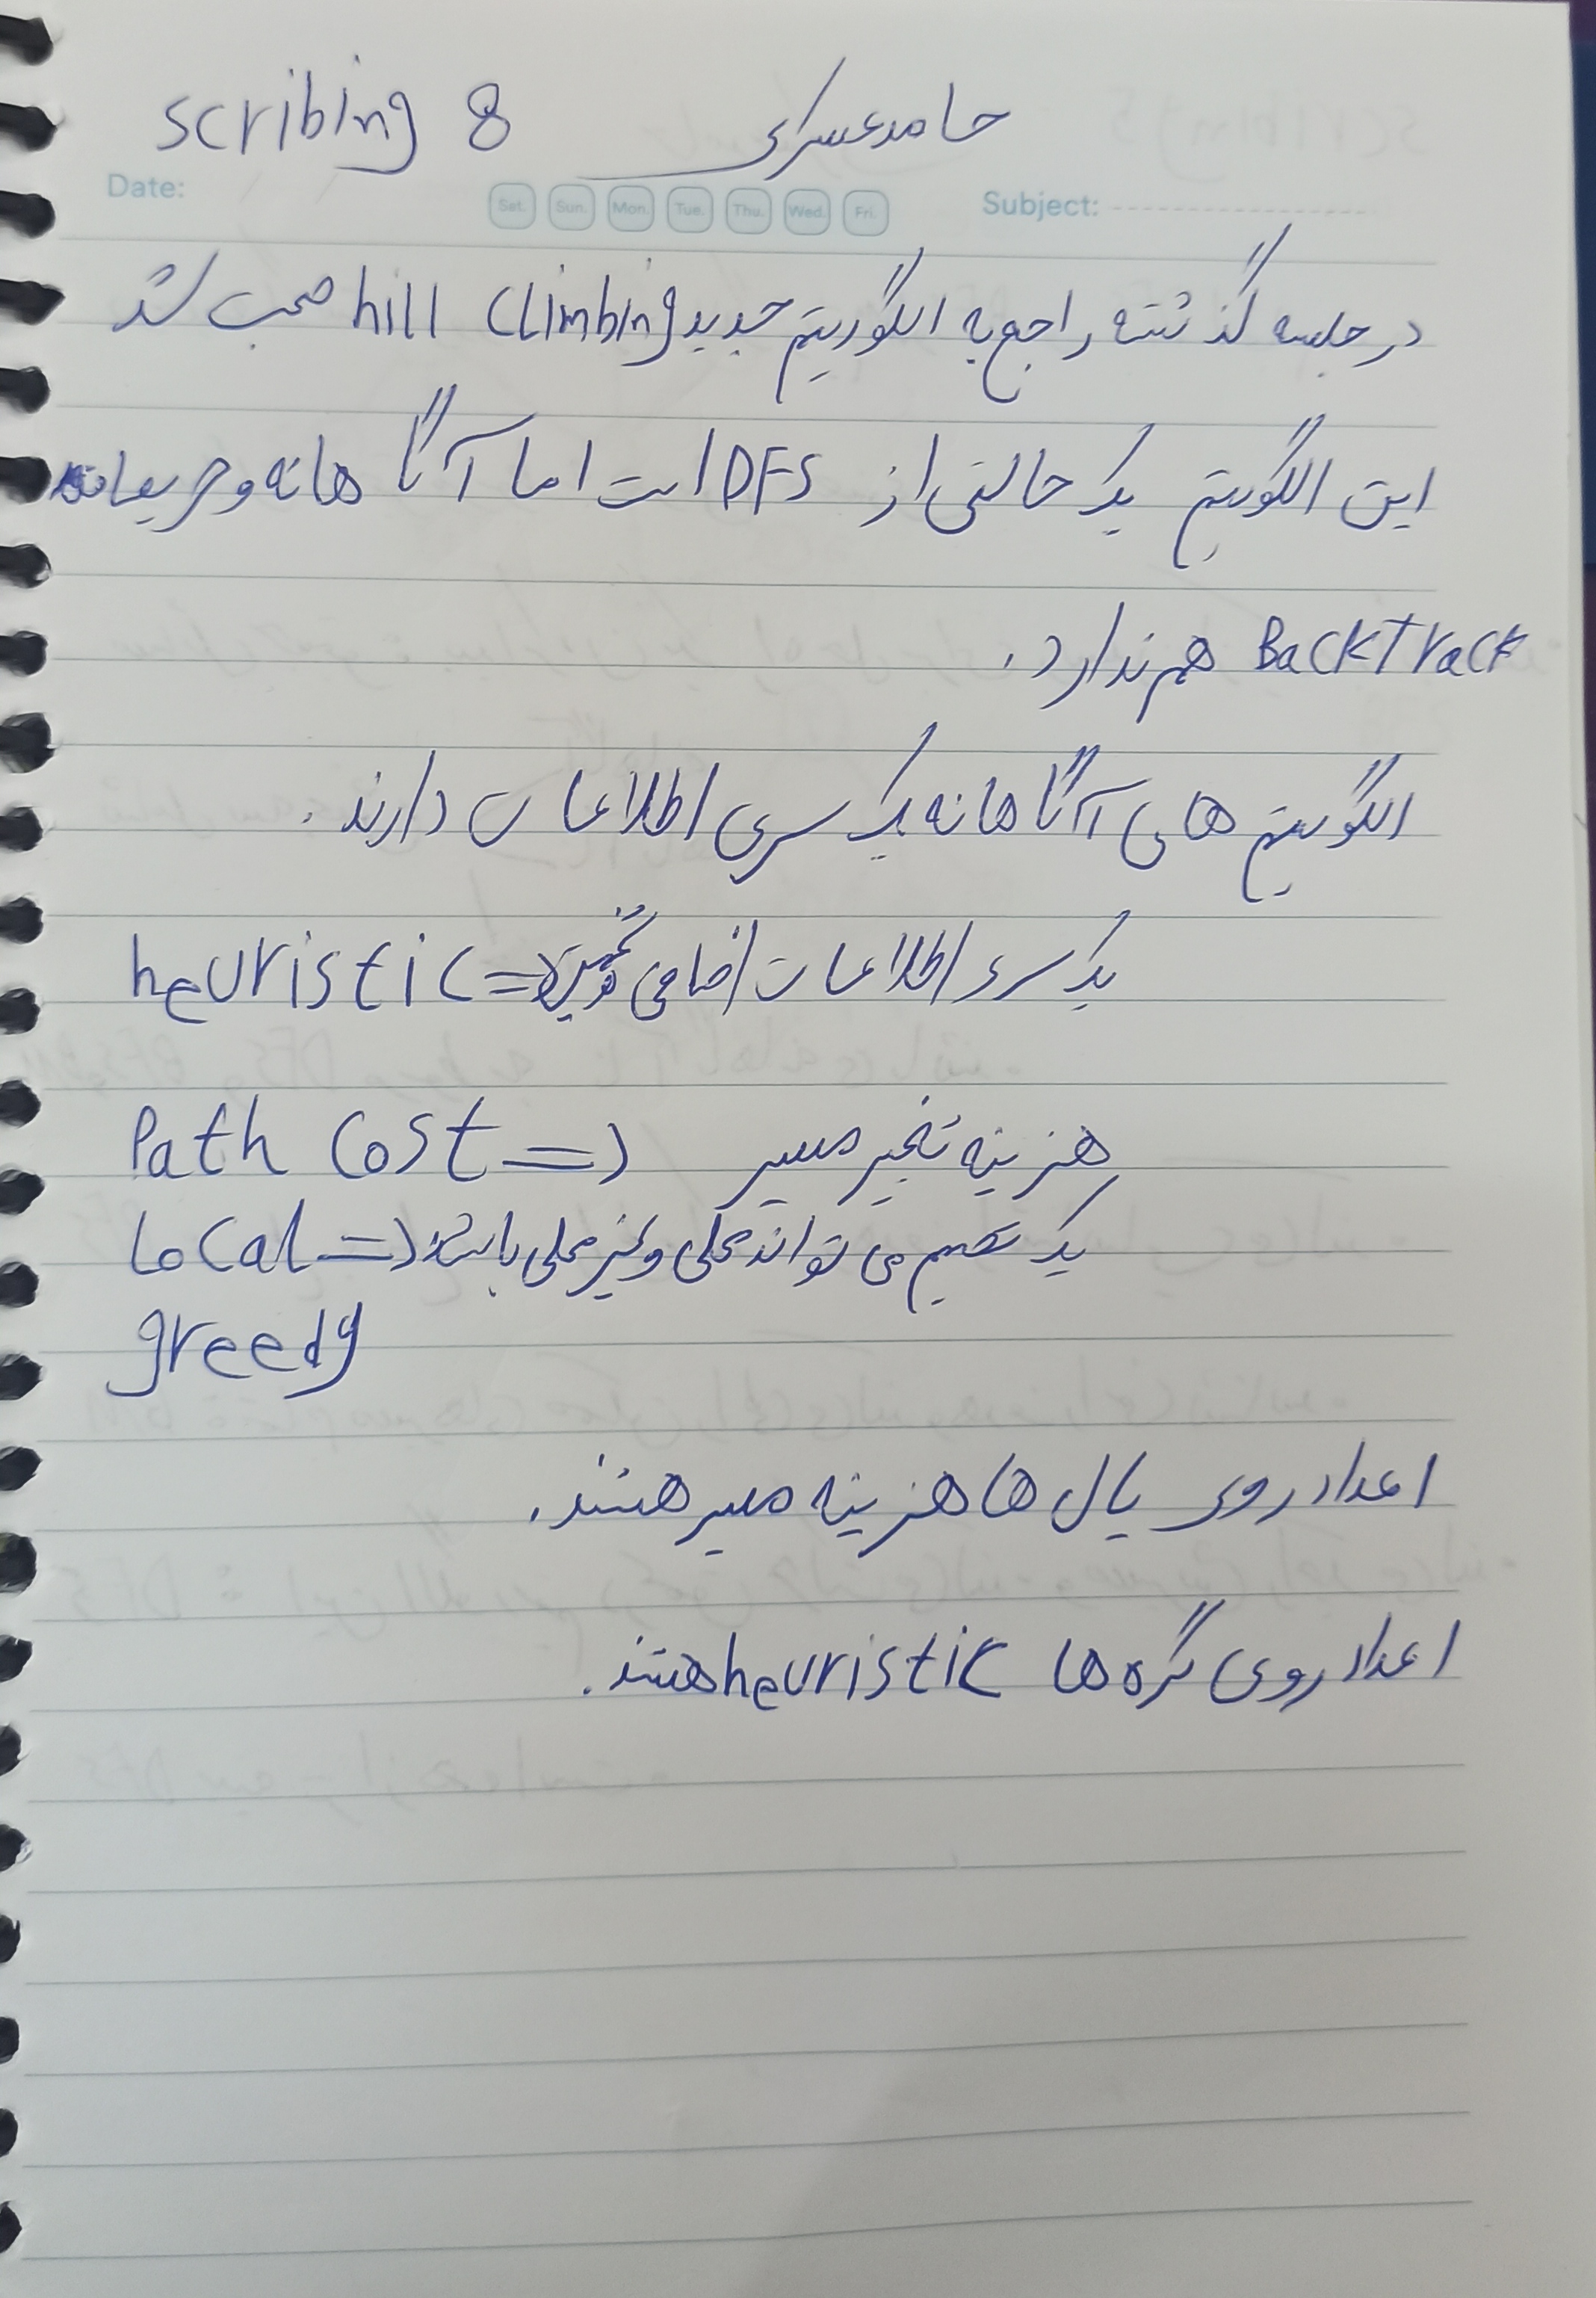 scribing 8 حامد عسکری
Date: Sat. Sun. Mon. Tue. Thu. Wed. Fri. Subject:
در جلسه گذشته راجع به الگوریتم جدید hill climbing صحبت شد
این الگوریتم یک حالتی از DFS است اما آگاهانه و حریصانه
BackTrack هم ندارد.
الگوریتم های آگاهانه یک سری اطلاعات دارند.
heuristic => یک سری اطلاعات اضافی
Path Cost => هزینه تغییر مسیر
Local => یک تصمیم می تواند محلی و غیر محلی باشد
greedy
اعداد روی یال ها هزینه مسیر هستند.
اعداد روی گره ها heuristic هستند.